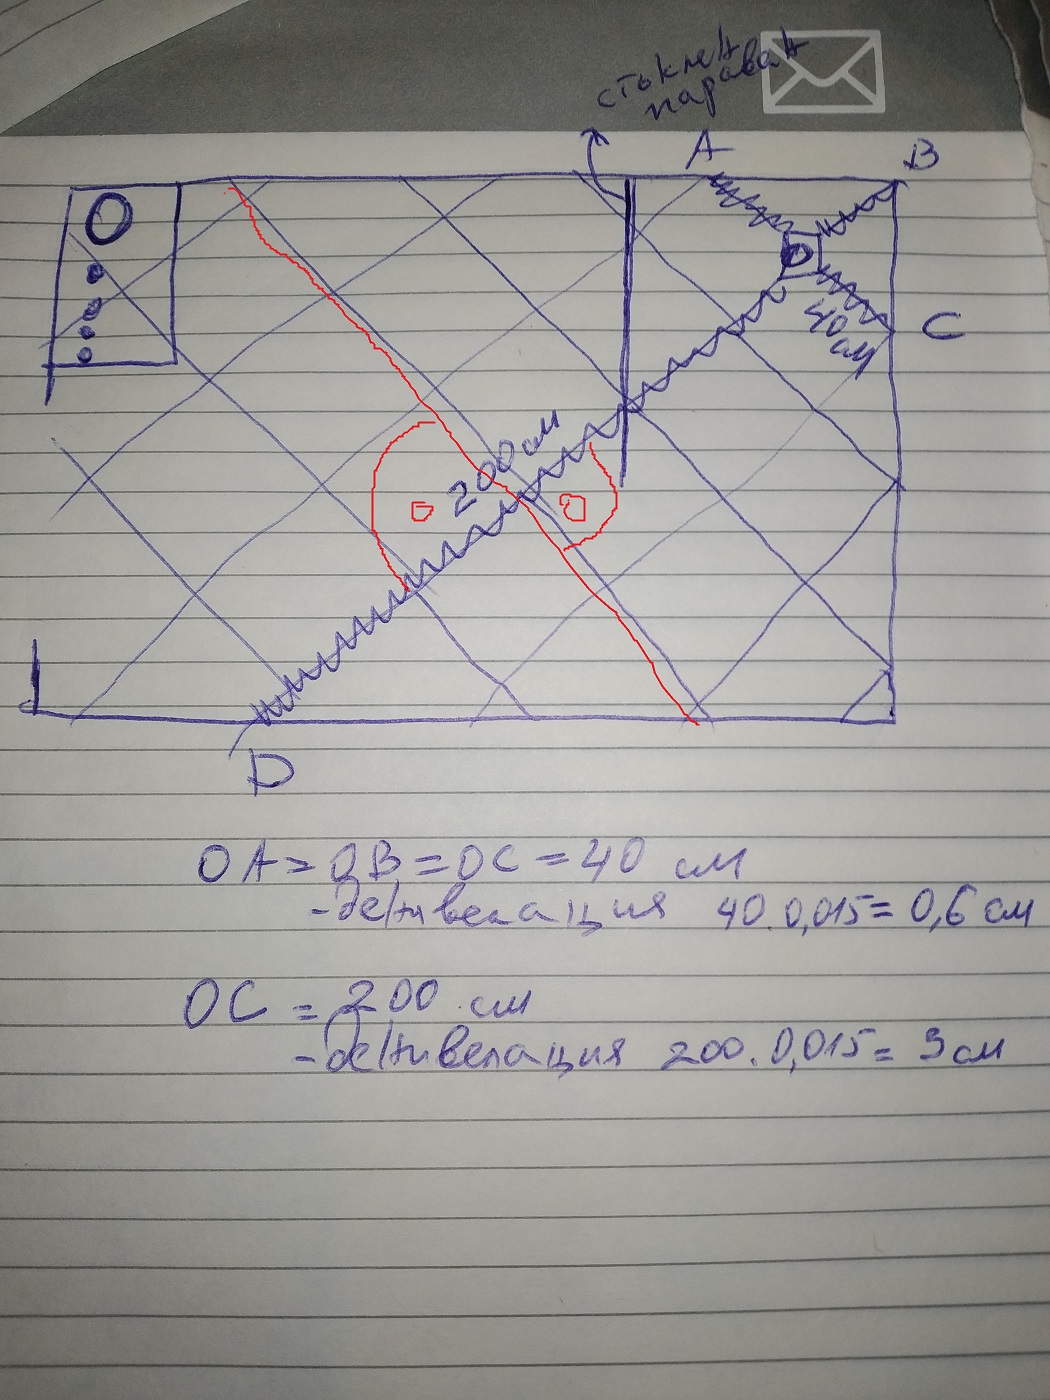 стъклен
параван
A
B
C
40
см
200 см
D
OA = OB = OC = 40 см
- денивелация 40.0,015 = 0,6 см
OC = 200 см
- денивелация 200.0,015 = 3 см